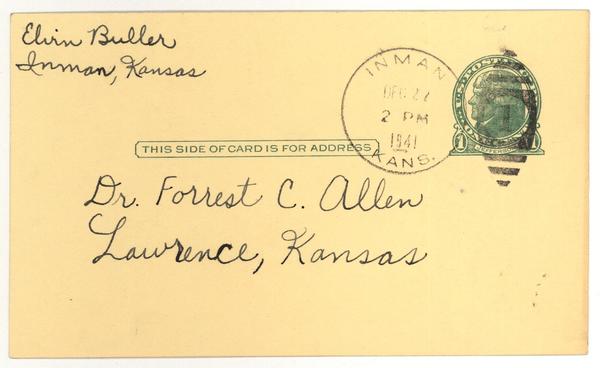 Elvin Buller
Inman, Kansas
INMAN
DEC 27
2 PM
1941
KANS.
THIS SIDE OF CARD IS FOR ADDRESS
Dr. Forrest C. Allen
Lawrence, Kansas